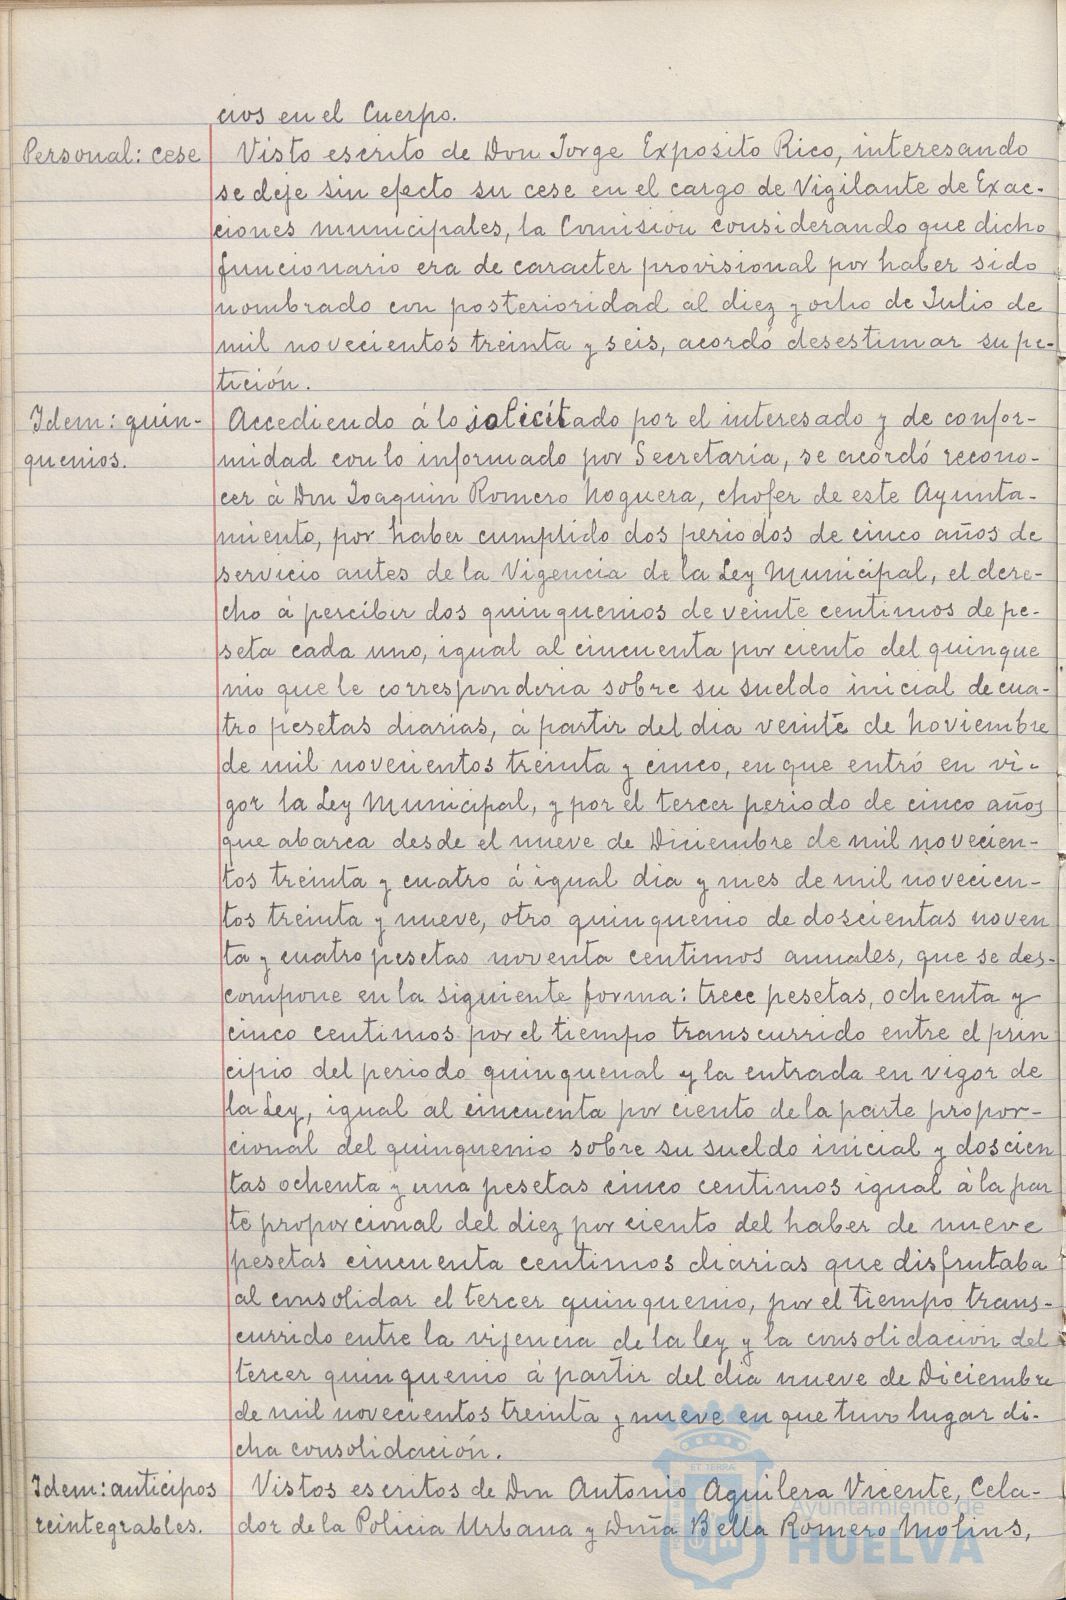 cios en el Cuerpo.
Personal: cese
Visto escrito de Don Jorge Exposito Rico, interesando
se deje sin efecto su cese en el cargo de Vigilante de Exac-
ciones municipales, la Comisión considerando que dicho
funcionario era de caracter provisional por haber sido
nombrado con posterioridad al diez y ocho de Julio de
mil novecientos treinta y seis, acordó desestimar su pe-
tición.
Idem: quin-
quenios.
Accediendo á lo solicitado por el interesado y de confor-
midad con lo informado por Secretaria, se acordó recono-
cer á Don Joaquin Romero Noguera, chofer de este Ayunta-
miento, por haber cumplido dos periodos de cinco años de
servicio antes de la Vigencia de la Ley Municipal, el dere-
cho á percibir dos quinquenios de veinte centimos de pe-
seta cada uno, igual al cincuenta por ciento del quinque
nio que le corresponderia sobre su sueldo inicial de cua-
tro pesetas diarias, á partir del dia veinte de noviembre
de mil novecientos treinta y cinco, en que entró en vi-
gor la Ley Municipal, y por el tercer periodo de cinco años
que abarca desde el nueve de Diciembre de mil novecien-
tos treinta y cuatro á igual dia y mes de mil novecien-
tos treinta y nueve, otro quinquenio de doscientas noven
ta y cuatro pesetas noventa centimos anuales, que se des-
compone en la siguiente forma: trece pesetas, ochenta y
cinco centimos por el tiempo transcurrido entre el prin
cipio del periodo quinquenal y la entrada en vigor de
la Ley, igual al cincuenta por ciento de la parte propor-
cional del quinquenio sobre su sueldo inicial y doscien
tas ochenta y una pesetas cinco centimos igual á la par
te proporcional del diez por ciento del haber de nueve
pesetas cincuenta centimos diarias que disfrutaba
al consolidar el tercer quinquenio, por el tiempo trans-
currido entre la vijencia de la ley y la consolidación del
tercer quinquenio á partir del dia nueve de Diciembre
de mil novecientos treinta y nueve en que tuvo lugar di-
cha consolidación.
Idem: anticipos
reintegrables.
Vistos escritos de Don Antonio Aguilera Vicente, Cela-
dor de la Policia Urbana y Dña Bella Romero Molins,
Ayuntamiento de
HUELVA